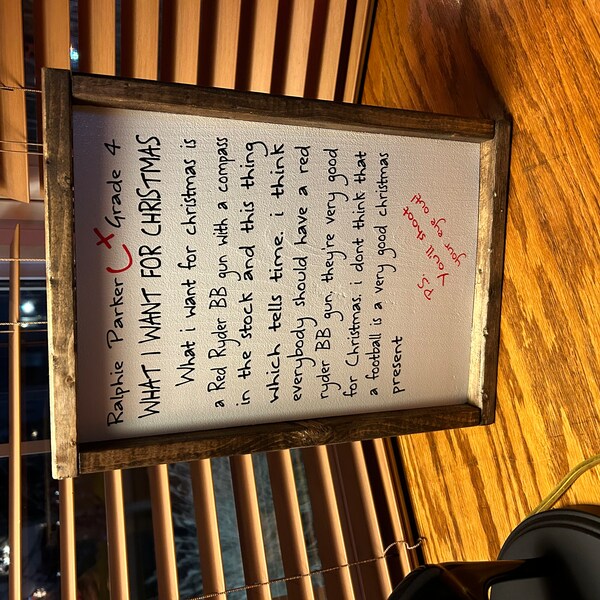 Ralphie Parker C+ Grade 4
WHAT I WANT FOR CHRISTMAS
What i want for christmas is
a Red Ryder BB gun with a compass
in the stock and this thing
which tells time. i think
everybody should have a red
ryder BB gun. they're very good
for Christmas. i dont think that
a football is a very good christmas
present
P.S.
You'll shoot
your eye out!